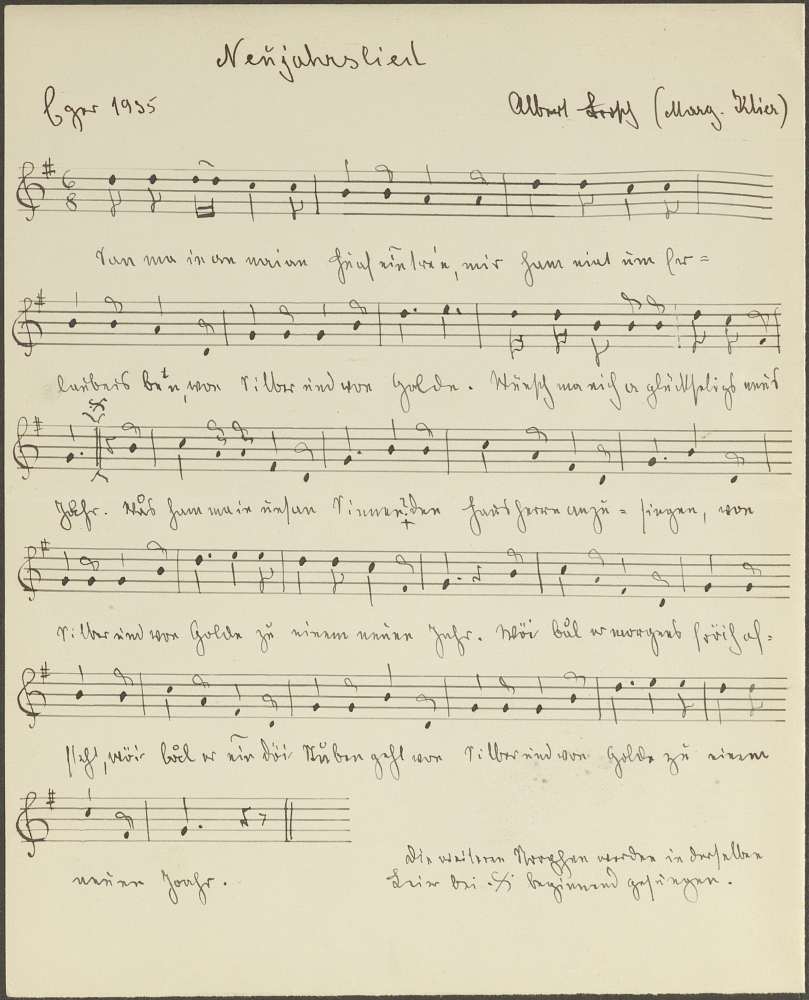 Neujahrslied
Eger 1935 Albert Brosch (Marg. Klier)
6
8
ma in an naian eintrén, mir ham niat um Er=
laubnis von Silber und von Golde. Wünsch ma eich a glückseligs neus
Joahr. Wås ham ma in unsan Sinnen? den Hausherrn anzu= singen, von
Silber und von Golde zu einem neuen Joahr. Wöi båld er morgens fröih af=
steht, wöi båld er ein döi Stuben geht von Silber und von Golde zu einem
neuen Joahr.
Die weiteren Strophen werden in derselben
Leier bei 𝄋 beginnend gesungen.